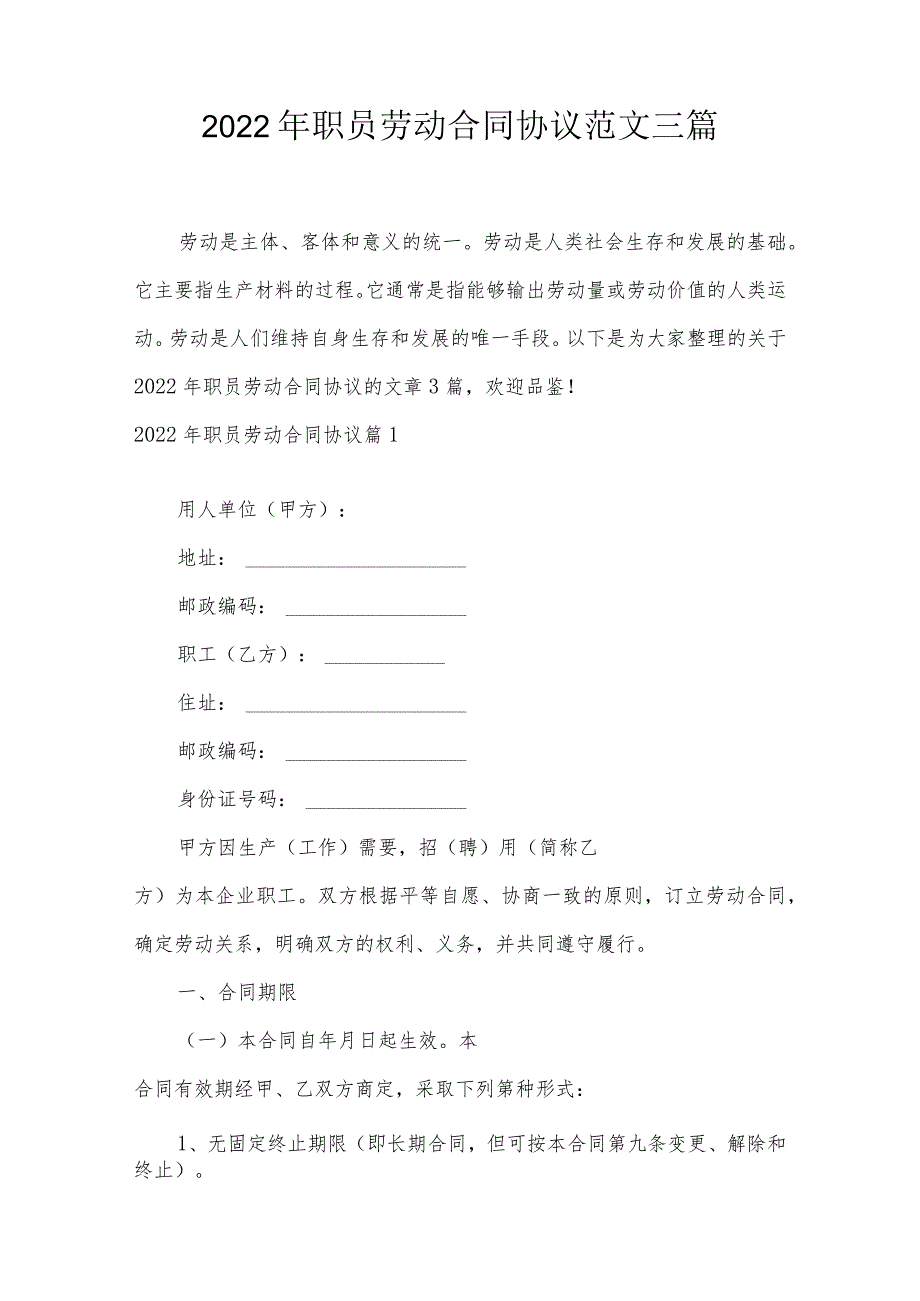 2022年职员劳动合同协议范文三篇
劳动是主体、客体和意义的统一。劳动是人类社会生存和发展的基础。
它主要指生产材料的过程。它通常是指能够输出劳动量或劳动价值的人类运
动。劳动是人们维持自身生存和发展的唯一手段。以下是为大家整理的关于
2022年职员劳动合同协议的文章3篇，欢迎品鉴！
2022年职员劳动合同协议篇1
用人单位（甲方）：
地址：______________________
邮政编码：__________________
职工（乙方）：____________
住址：______________________
邮政编码：__________________
身份证号码：________________
甲方因生产（工作）需要，招（聘）用（简称乙
方）为本企业职工。双方根据平等自愿、协商一致的原则，订立劳动合同，
确定劳动关系，明确双方的权利、义务，并共同遵守履行。
一、合同期限
（一）本合同自年月日起生效。本
合同有效期经甲、乙双方商定，采取下列第种形式：
1、无固定终止期限（即长期合同，但可按本合同第九条变更、解除和
终止）。